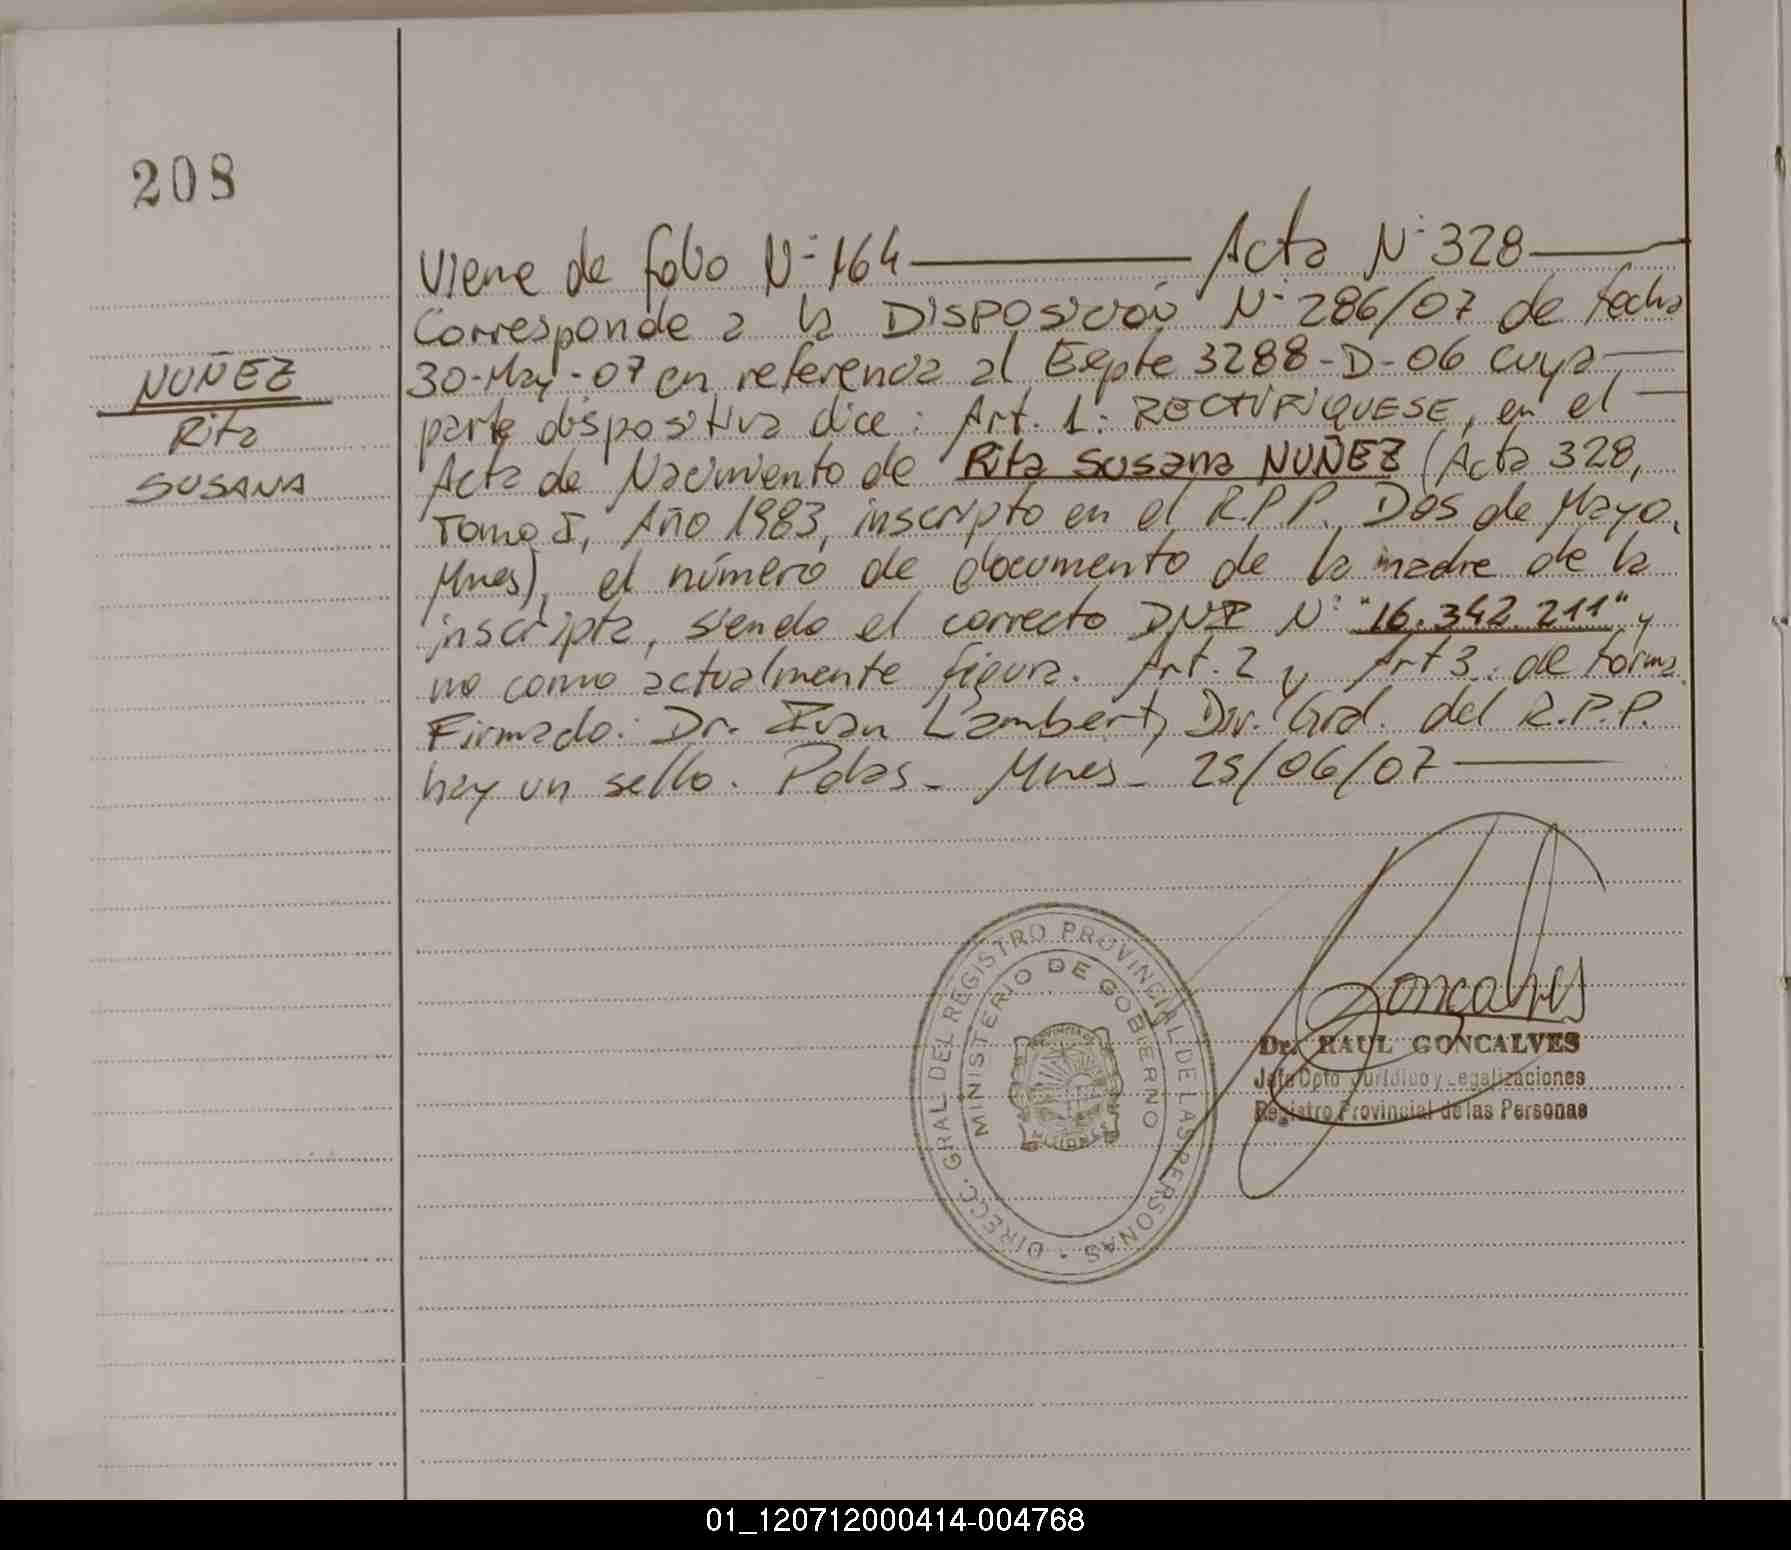 208
Viene de folio N° 164 ——— Acta N° 328 ———
Corresponde a la Disposición N° 286/07 de fecha
30-May-07 en referencia al Expte 3288-D-06 cuya ——
NUÑEZ
parte dispositiva dice: Art. 1: RECTIFIQUESE, en el —
Rita
Acta de Nacimiento de Rita Susana NUÑEZ (Acta 328,
SUSANA
Tomo I, Año 1983, inscripto en el R.P.P. Dos de Mayo,
Mnes), el número de documento de la madre de la
inscripta, siendo el correcto DNI N° "16.342.211" y
no como actualmente figura. Art. 2 y Art 3: de forma.
Firmado: Dr. Ivan Lambert, Dir. Gral. del R.P.P.
hay un sello. Pdas - Mnes - 25/06/07 ———
Goncalves
Dr. RAUL GONCALVES
Jefe Dpto Jurídico y Legalizaciones
Registro Provincial de las Personas
DIRECC. GRAL. DEL REGISTRO PROVINCIAL DE LAS PERSONAS
MINISTERIO DE GOBIERNO
PROVINCIA DE
MISIONES
01_120712000414-004768